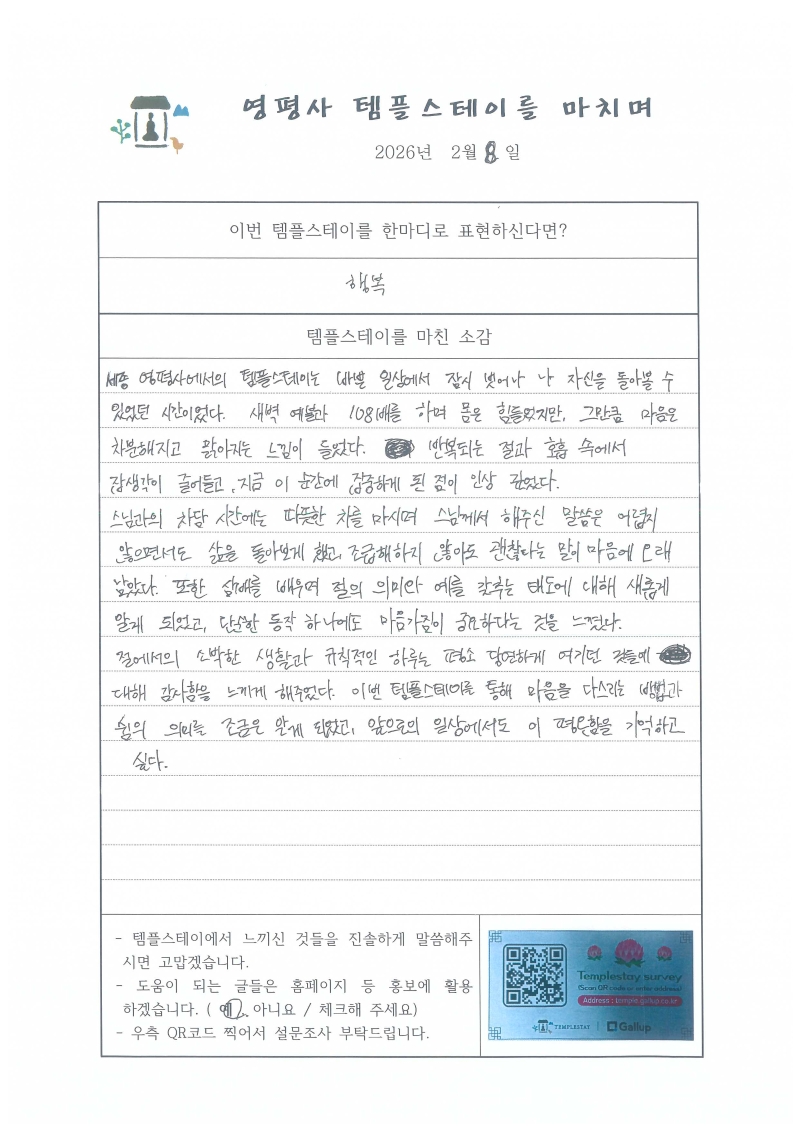 영평사 템플스테이를 마치며
2026년 2월 8일
이번 템플스테이를 한마디로 표현하신다면?
행복
템플스테이를 마친 소감
세종 영평사에서의 템플스테이는 바쁜 일상에서 잠시 벗어나 나 자신을 돌아볼 수
있었던 시간이었다. 새벽 예불과 108배를 하며 몸은 힘들었지만, 그만큼 마음은
차분해지고 맑아지는 느낌이 들었다. 반복되는 절과 호흡 속에서
잡생각이 줄어들고, 지금 이 순간에 집중하게 된 점이 인상 깊었다.
스님과의 차담 시간에는 따뜻한 차를 마시며 스님께서 해주신 말씀은 어렵지
않으면서도 삶을 돌아보게 했고, 조급해하지 않아도 괜찮다는 말이 마음에 오래
남았다. 또한 삼배를 배우며 절의 의미와 예를 갖추는 태도에 대해 새롭게
알게 되었고, 단순한 동작 하나에도 마음가짐이 중요하다는 것을 느꼈다.
절에서의 소박한 생활과 규칙적인 하루는 평소 당연하게 여기던 것들에
대해 감사함을 느끼게 해주었다. 이번 템플스테이를 통해 마음을 다스리는 방법과
쉼의 의미를 조금은 알게 되었고, 앞으로의 일상에서도 이 평온함을 기억하고
싶다.
- 템플스테이에서 느끼신 것들을 진솔하게 말씀해주
시면 고맙겠습니다.
- 도움이 되는 글들은 홈페이지 등 홍보에 활용
하겠습니다. ( 예, 아니요 / 체크해 주세요)
- 우측 QR코드 찍어서 설문조사 부탁드립니다.
Templestay survey
(Scan QR code or enter address)
Address : temple.gallup.co.kr
TEMPLESTAY | Gallup